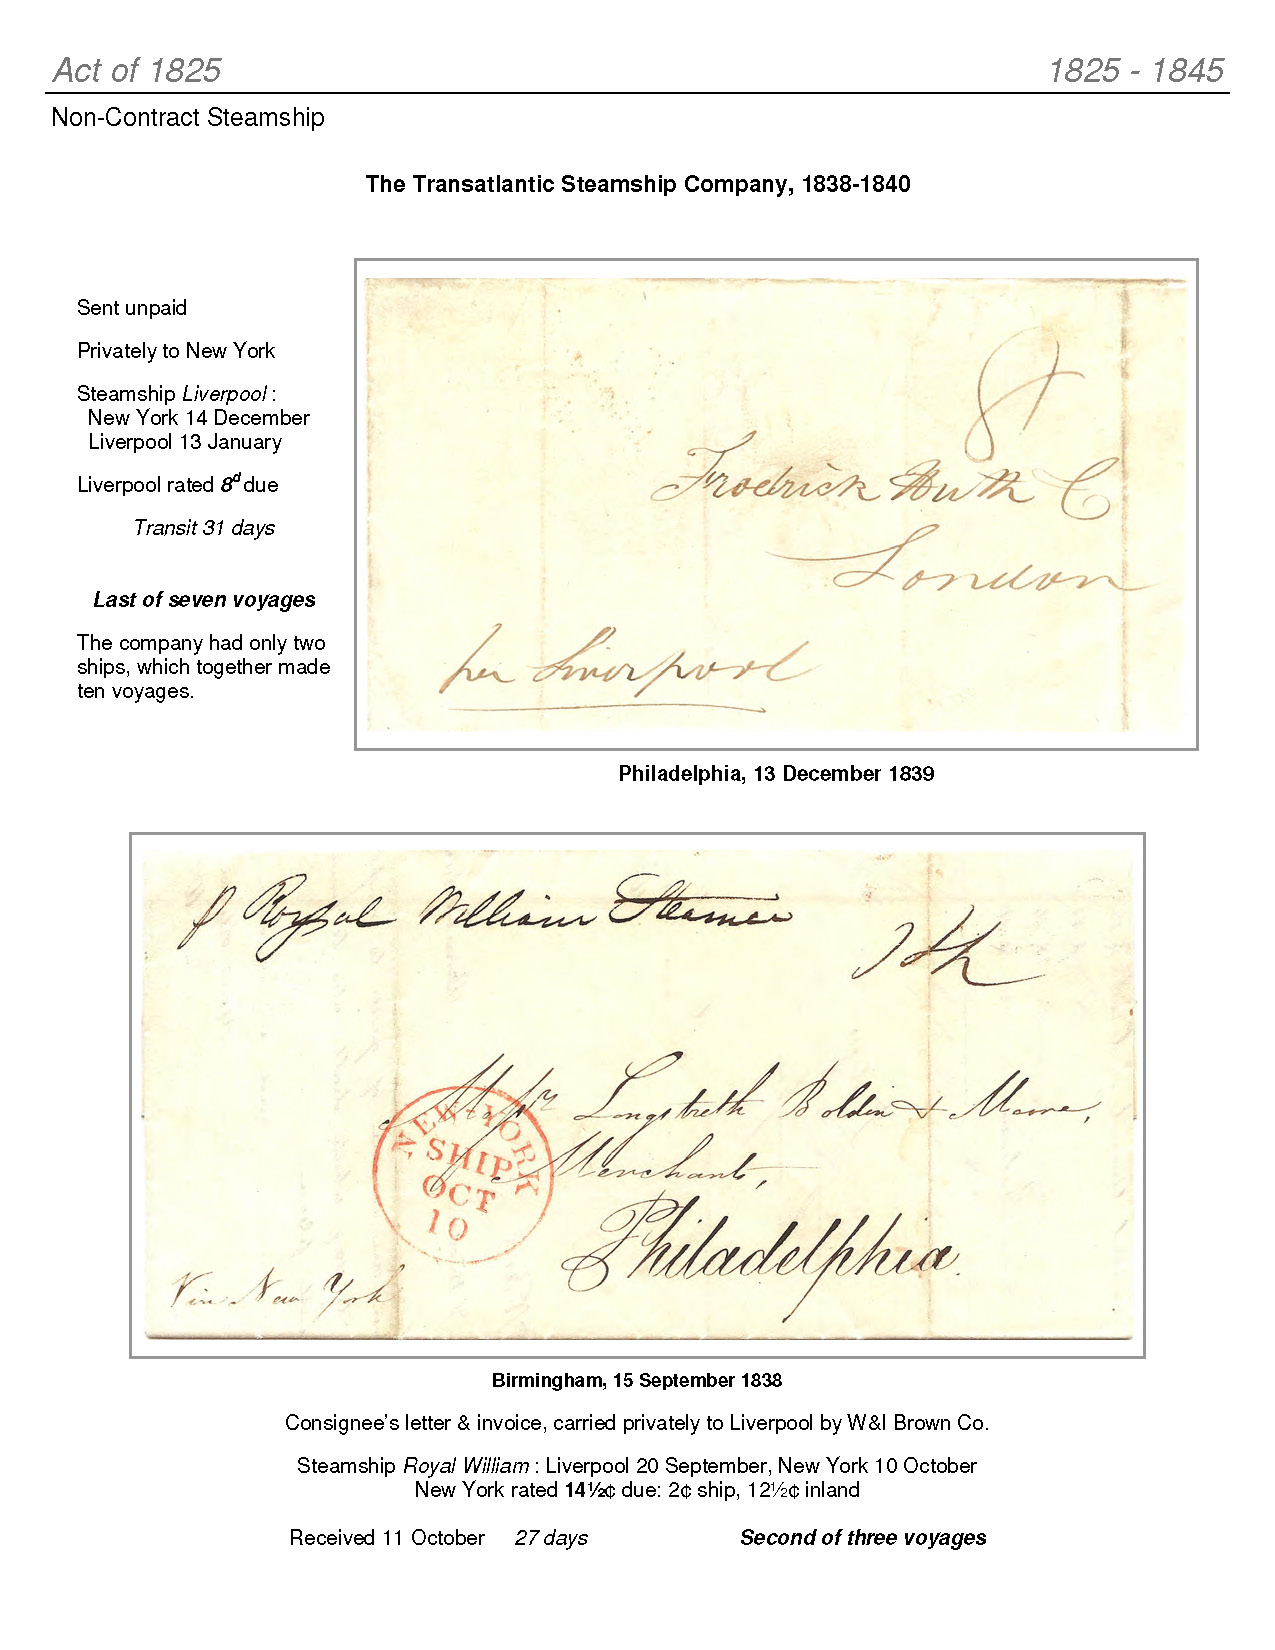 Act of 1825 1825 - 1845
Non-Contract Steamship
The Transatlantic Steamship Company, 1838-1840
Sent unpaid
Privately to New York
Steamship Liverpool :
New York 14 December
Liverpool 13 January
Liverpool rated 8d due
Transit 31 days
Last of seven voyages
The company had only two
ships, which together made
ten voyages.
8
Frodrick Huth C
London
per Liverpool
Philadelphia, 13 December 1839
p Royal William Steamer
Messrs Longstreth Boldin & Moore,
Merchants,
Philadelphia.
NEW-YORK
SHIP
OCT
10
Via New York
Birmingham, 15 September 1838
Consignee's letter & invoice, carried privately to Liverpool by W&I Brown Co.
Steamship Royal William : Liverpool 20 September, New York 10 October
New York rated 14½¢ due: 2¢ ship, 12½¢ inland
Received 11 October 27 days Second of three voyages